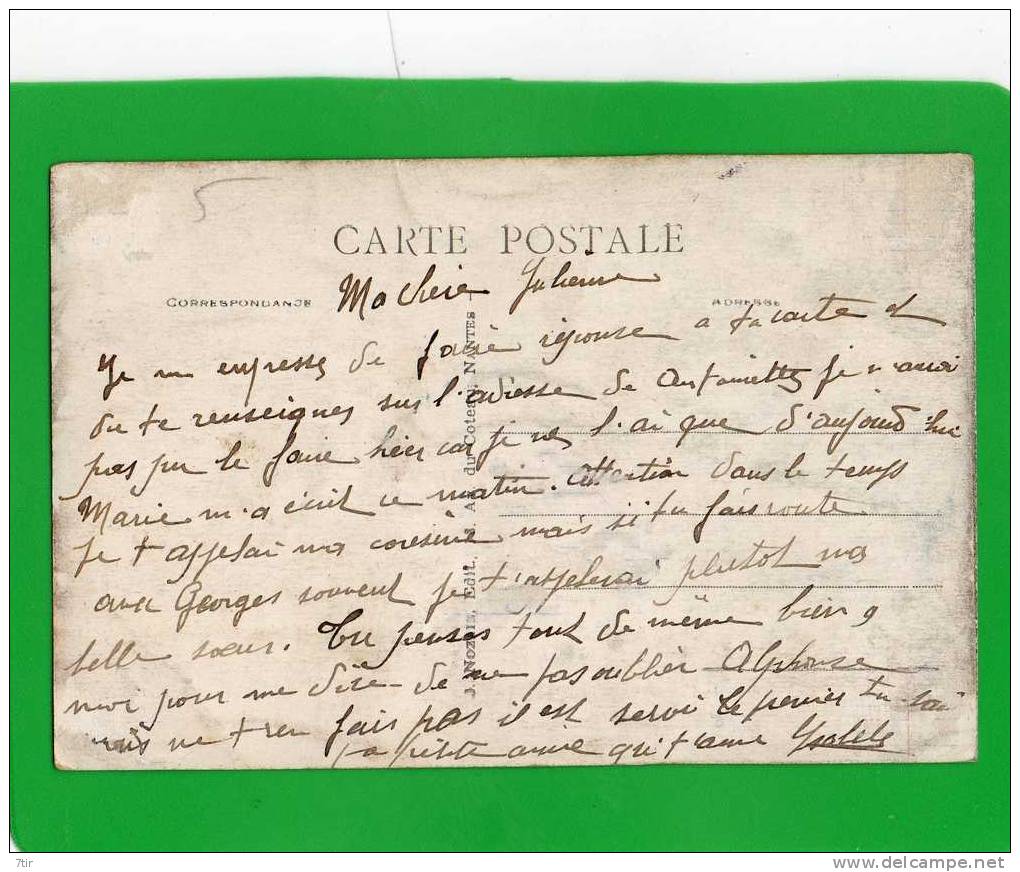 5
CARTE POSTALE
CORRESPONDANCE
ADRESSE
Ma chère Julienne
Je m empresse de faire réponse a ta carte et
de te renseignes sur l'adresse de Antoinette je n'avai
pas pu le faire hier car je ne l'ai que d'aujourd'hui
Marie m'a écrit ce matin. Attention dans le temps
je t'appelai ma cousine mais si tu fais route
avec Georges souvent je t'appelerai plutot ma
belle sœur. Tu penses tout de même bien a
moi pour me dire de ne pas oublier Alphonse
mais ne t'en fais pas il est servi le premier tu sai
ta petite amie qui t'aime
J. NOZAIS, Edit., Av. du Coteau, NANTES
7tir
www.delcampe.net